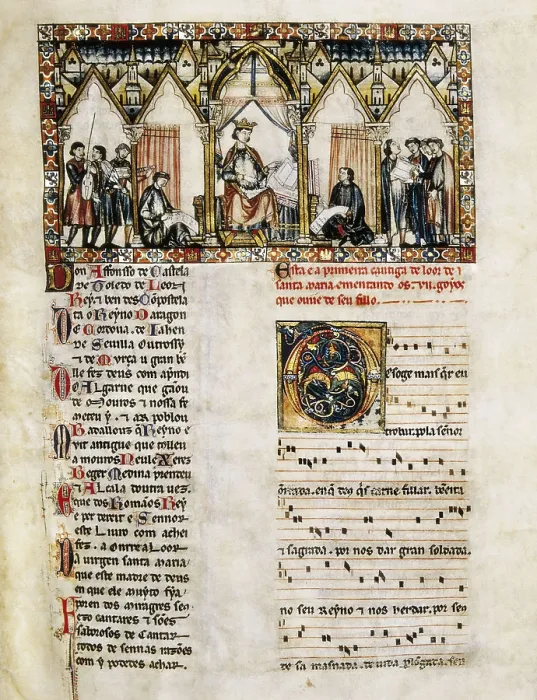 Don Affonsso de Castela
de Toledo de Leon
Rey ⁊ ben des Conpostela
ta o Reyno Daragon
De Cordova. de Iahen
de Sevilla outrossy
⁊ de Murça u gran bẽ
lle fez deus com aprndi
Do Algarve que gãou
de Mouros ⁊ nossa fe
meteu y. ⁊ ar poblou
Badallouz q̃ Reyno e
Muit antigue que tolleu
a mouros Neule Xerez
Beger Medina prendeu
⁊ Alcala doutra vez.
e que dos Romãos Rey
e per dereit e Sennor
este Livro com achei
fez. a onrr e a Loor
Da virgen santa maria
que este madre de deus
en que ele muyto fya
Poren dos miragres seus
fezo cantares ⁊ sões
saborosos de cantar
todos de sennas razões
com y podedes achar.
Esta e a primeira cantiga de loor de
santa maria ementando os. vii. goyos
que ouve de seu fillo.
Des oge mais q̃r eu
trobar. pola señor
õrrada. en q̃ deus q̃s carne fillar. bẽeita
⁊ sagrada. por nos dar gran soldada.
no seu Reyno ⁊ nos herdar. por seus
de sa masnada. de vida plõgada. sen